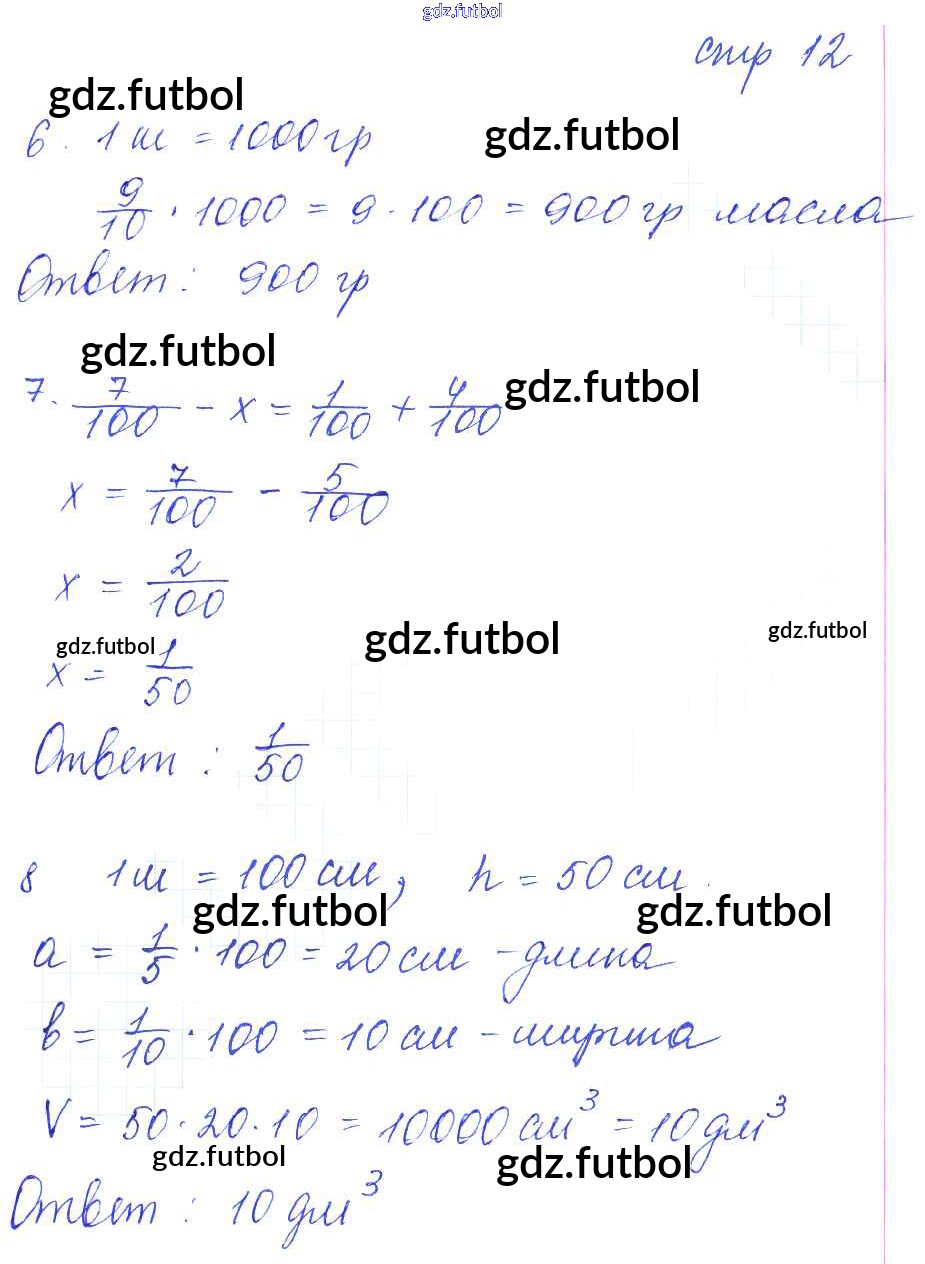 gdz.futbol
стр 12
gdz.futbol
gdz.futbol
6. 1 м = 1000 гр
9/10 · 1000 = 9 · 100 = 900 гр масла
Ответ: 900 гр
gdz.futbol
gdz.futbol
7. 7/100 - x = 1/100 + 4/100
x = 7/100 - 5/100
x = 2/100
gdz.futbol
gdz.futbol
gdz.futbol
x = 1/50
Ответ: 1/50
8 1 м = 100 см, h = 50 см.
gdz.futbol
gdz.futbol
a = 1/5 · 100 = 20 см - длина
в = 1/10 · 100 = 10 см - ширина
V = 50 · 20 · 10 = 10000 см³ = 10 дм³
gdz.futbol
gdz.futbol
Ответ: 10 дм³